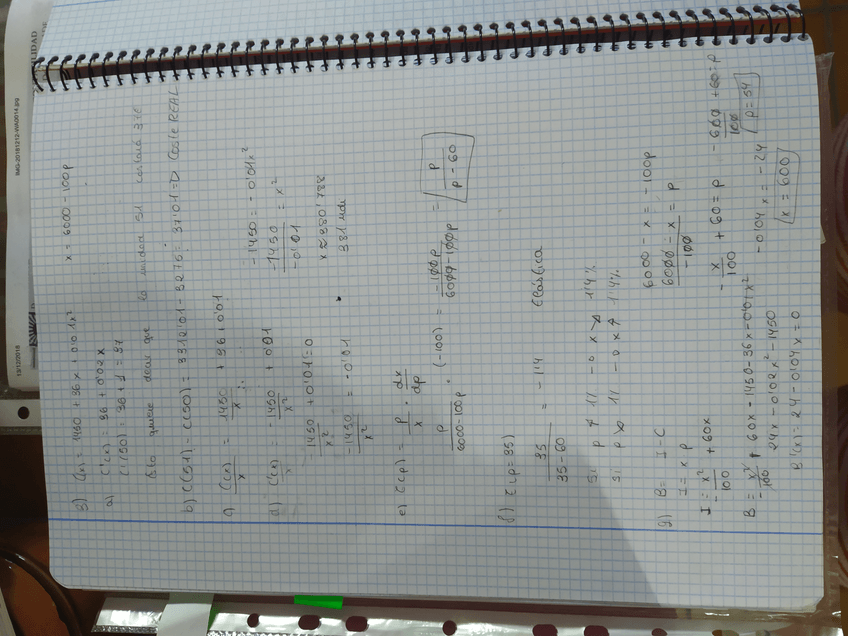 3) C(x) = 1450 + 36x + 0'01x²     x = 6000 - 100p
a) C'(x) = 36 + 0'02x
C'(50) = 36 + 1 = 37
Esto quiere decir que la unidad 51 costará 37€
b) C(51) - C(50) = 3312'01 - 3275 = 37'01 => Coste REAL
c) C(x)/x = 1450/x + 36 + 0'01
d) C'(x)/x = -1450/x² + 0'01
-1450/x² + 0'01 = 0
-1450/x² = -0'01
-1450 = -0'01x²
-1450/-0'01 = x²
x ≈ 380'788
381 uds
e) ε(p) = p/x · dx/dp
p/6000-100p · (-100) = -100p/6000-100p = p/p-60
f) ε(p=35)
35/35-60 = -1'4     Elástica
Si p ↗ 1% -> x ↘ 1'4%
Si p ↘ 1% -> x ↗ 1'4%
g) B = I - C
I = x p
I = -x²/100 + 60x
6000 - x = -100p
6000 - x/-100 = p
-x/100 + 60 = p
B = -x²/100 + 60x - 1450 - 36x - 0'01x²
24x - 0'02x² - 1450
B'(x) = 24 - 0'04x = 0
-0'04x = -24
x = 600
-600/100 + 60 = p
p = 54
13/12/2018
IMG-20181212-WA0014.jpg